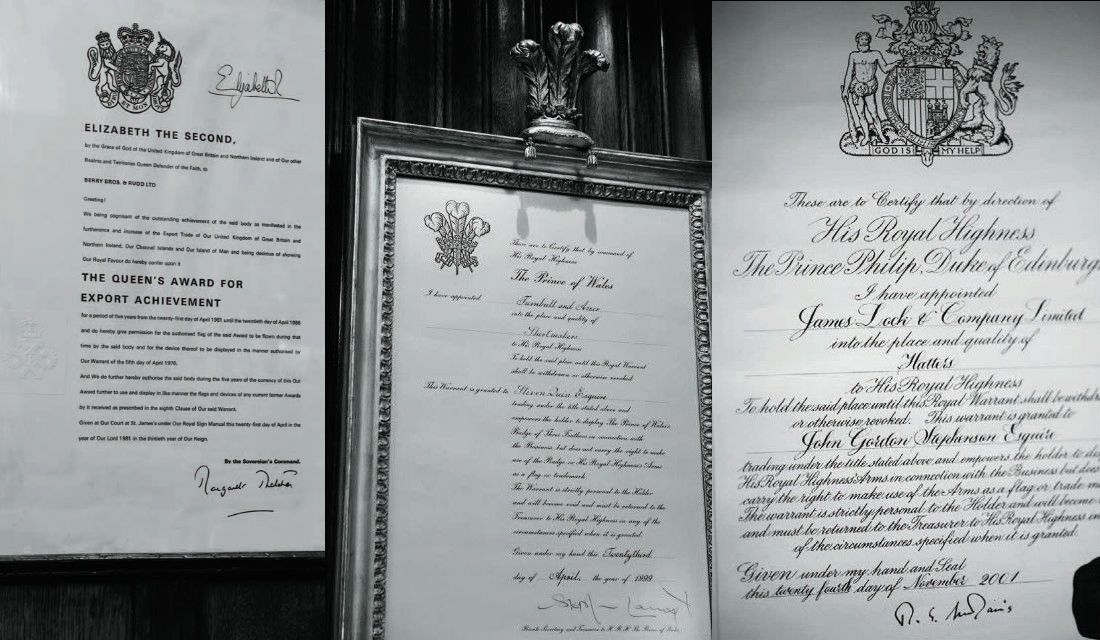 ET MON
Elizabeth R
ELIZABETH THE SECOND,
by the Grace of God of the United Kingdom of Great Britain and Northern Ireland and of Our other
Realms and Territories Queen Defender of the Faith, to
BERRY BROS. & RUDD LTD
Greeting!
We being cognisant of the outstanding achievement of the said body as manifested in the
furtherance and increase of the Export Trade of Our United Kingdom of Great Britain and
Northern Ireland, Our Channel Islands and Our Island of Man and being desirous of showing
Our Royal Favour do hereby confer upon it
THE QUEEN'S AWARD FOR
EXPORT ACHIEVEMENT
for a period of five years from the twenty-first day of April 1981 until the twentieth day of April 1986
and do hereby give permission for the authorised flag of the said Award to be flown during that
time by the said body and for the device thereof to be displayed in the manner authorised by
Our Warrant of the fifth day of April 1976.
And We do further hereby authorise the said body during the five years of the currency of this Our
Award further to use and display in like manner the flags and devices of any current former Awards
by it received as prescribed in the eighth Clause of Our said Warrant.
Given at Our Court at St. James's under Our Royal Sign Manual this twenty-first day of April in the
year of Our Lord 1981 in the thirtieth year of Our Reign.
By the Sovereign's Command.
Margaret Thatcher
These are to Certify that by command of
His Royal Highness
The Prince of Wales
I have appointed Turnbull and Asser
into the place and quality of
Shirtmakers
to His Royal Highness
To hold the said place until this Royal Warrant
shall be withdrawn or otherwise revoked
This Warrant is granted to Steven Quin Esquire
trading under the title stated above and
empowers the holder to display The Prince of Wales's
Badge of Three Feathers in connection with
the Business, but does not carry the right to make
use of the Badge or His Royal Highness's Arms
as a flag or trademark
The Warrant is strictly personal to the Holder
and will become void and must be returned to the
Treasurer to His Royal Highness in any of the
circumstances specified when it is granted.
Given under my hand this Twentythird
day of April, the year of 1999
Private Secretary and Treasurer to H.R.H The Prince of Wales
GOD IS MY HELP
These are to Certify that by direction of
His Royal Highness
The Prince Philip, Duke of Edinburg
I have appointed
James Lock & Company Limited
into the place and quality of
Hatters
to His Royal Highness
To hold the said place until this Royal Warrant shall be withdr
or otherwise revoked. This warrant is granted to
John Gordon Stephenson Esquire
trading under the title stated above and empowers the holder to dis
His Royal Highness' Arms in connection with the Business but does
carry the right to make use of the Arms as a flag or trade m
The warrant is strictly personal to the Holder and will become
and must be returned to the Treasurer to His Royal Highness in
of the circumstances specified when it is granted.
Given under my hand and Seal
this twenty fourth day of November 2001